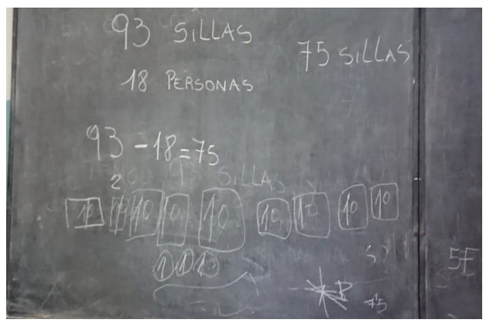 93 SILLAS
75 SILLAS
18 PERSONAS
93 - 18 = 75
2
SILLAS
10 10 10 10 10 10 10 10
1 1 10
R
75
5E